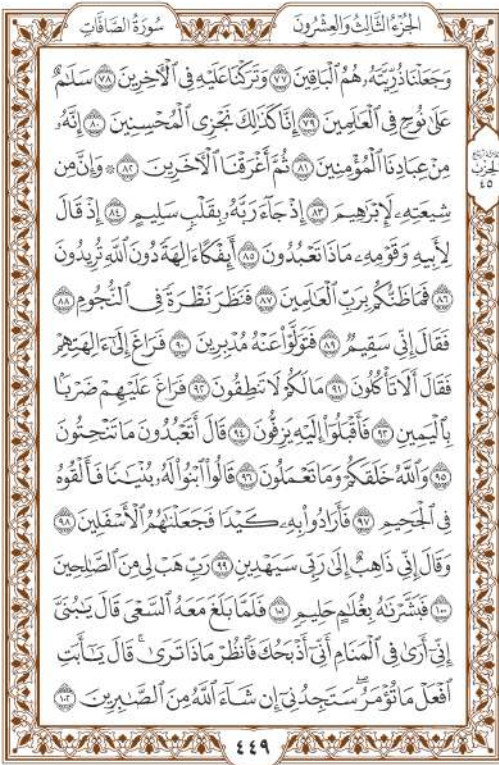 سُورَةُ الصَّافَّاتِ
الجُزْءُ الثَّالِثُ وَالعِشْرُونَ
وَجَعَلْنَا ذُرِّيَّتَهُۥ هُمُ ٱلْبَاقِينَ ٧٧ وَتَرَكْنَا عَلَيْهِ فِي ٱلْأٓخِرِينَ ٧٨ سَلَٰمٌ
عَلَىٰ نُوحٖ فِي ٱلْعَٰلَمِينَ ٧٩ إِنَّا كَذَٰلِكَ نَجْزِي ٱلْمُحْسِنِينَ ٨٠ إِنَّهُۥ
مِنْ عِبَادِنَا ٱلْمُؤْمِنِينَ ٨١ ثُمَّ أَغْرَقْنَا ٱلْأٓخَرِينَ ٨٢ ۞ وَإِنَّ مِن
شِيعَتِهِۦ لَإِبْرَٰهِيمَ ٨٣ إِذْ جَآءَ رَبَّهُۥ بِقَلْبٖ سَلِيمٍ ٨٤ إِذْ قَالَ
لِأَبِيهِ وَقَوْمِهِۦ مَاذَا تَعْبُدُونَ ٨٥ أَئِفْكًا ءَالِهَةٗ دُونَ ٱللَّهِ تُرِيدُونَ
٨٦ فَمَا ظَنُّكُم بِرَبِّ ٱلْعَٰلَمِينَ ٨٧ فَنَظَرَ نَظْرَةٗ فِي ٱلنُّجُومِ ٨٨
فَقَالَ إِنِّي سَقِيمٞ ٨٩ فَتَوَلَّوْاْ عَنْهُ مُدْبِرِينَ ٩٠ فَرَاغَ إِلَىٰٓ ءَالِهَتِهِمْ
فَقَالَ أَلَا تَأْكُلُونَ ٩١ مَا لَكُمْ لَا تَنطِقُونَ ٩٢ فَرَاغَ عَلَيْهِمْ ضَرْبَۢا
بِٱلْيَمِينِ ٩٣ فَأَقْبَلُوٓاْ إِلَيْهِ يَزِفُّونَ ٩٤ قَالَ أَتَعْبُدُونَ مَا تَنْحِتُونَ
٩٥ وَٱللَّهُ خَلَقَكُمْ وَمَا تَعْمَلُونَ ٩٦ قَالُواْ ٱبْنُواْ لَهُۥ بُنْيَٰنٗا فَأَلْقُوهُ
فِي ٱلْجَحِيمِ ٩٧ فَأَرَادُواْ بِهِۦ كَيْدٗا فَجَعَلْنَٰهُمُ ٱلْأَسْفَلِينَ ٩٨
وَقَالَ إِنِّي ذَاهِبٌ إِلَىٰ رَبِّي سَيَهْدِينِ ٩٩ رَبِّ هَبْ لِي مِنَ ٱلصَّٰلِحِينَ
١٠٠ فَبَشَّرْنَٰهُ بِغُلَٰمٍ حَلِيمٖ ١٠١ فَلَمَّا بَلَغَ مَعَهُ ٱلسَّعْيَ قَالَ يَٰبُنَيَّ
إِنِّيٓ أَرَىٰ فِي ٱلْمَنَامِ أَنِّيٓ أَذْبَحُكَ فَٱنظُرْ مَاذَا تَرَىٰۚ قَالَ يَٰٓأَبَتِ
ٱفْعَلْ مَا تُؤْمَرُۖ سَتَجِدُنِيٓ إِن شَآءَ ٱللَّهُ مِنَ ٱلصَّٰبِرِينَ ١٠٢
الحِزْب
٤٥
٤٤٩